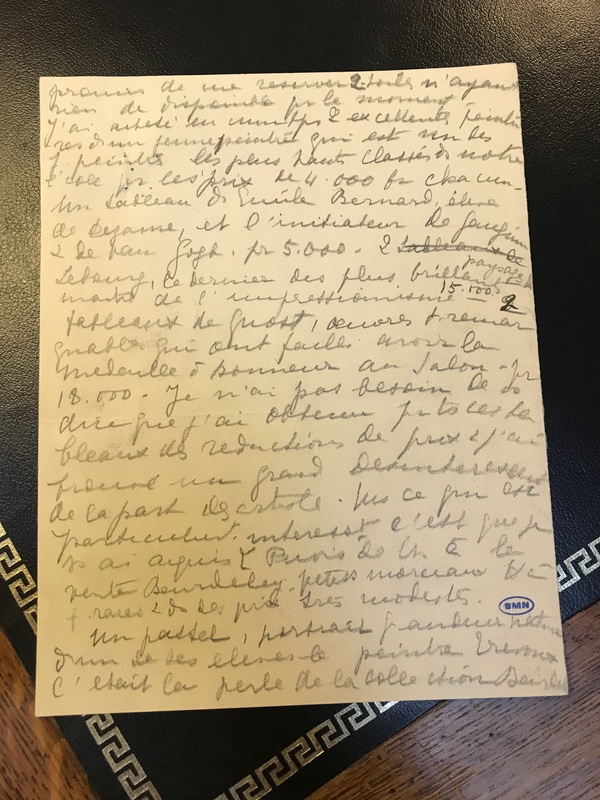 promis de me reserver 2 toiles n'ayant
rien de disponible pr le moment.
J'ai acheté en mm tps 2 excellentes peintu
res d'un jeune peintre qui est un des
peintres les plus hauts classés ds notre
école pr les prix de 4.000 fr chacun.
Un tableau de Emile Bernard, élève
de Cezanne, et l'initiateur de Gauguin
2 de Van Gogh. pr 5.000 - 2 tableaux de
paysages
Lebourg, ce dernier des plus brillants
maitre de l'impressionisme 15.000 2
tableaux de Guost, oeuvres remar
quables qui ont faille avoir la
medaille d honneur au Salon - pr
18.000 - Je n'ai pas besoin de vs
dire que j'ai obtenu pr ts ces ta
bleaux des reductions de prix & j'ai
trouvé un grand desinteressement
de la part des artiste. Ms ce qui est
particuliermt. interesst c'est que je
vs ai aquis Puvis de Ch à la
vente Beurdeley. petits morceaux
rares & ds des prix très modestes.
BMN
Un pastel, portrait grandeur nature
d'un de ses eleves le peintre
C'était la perle de la collection Beurde